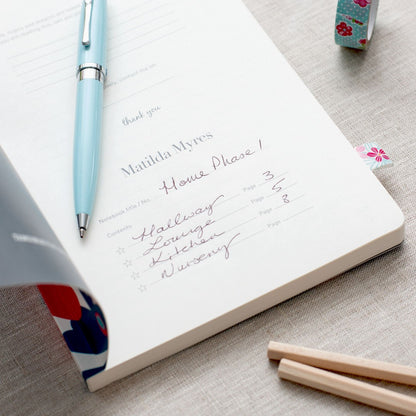 thank you
Matilda Myres
Notebook title / No. Home Phase 1
Contents
Hallway Page 3
Lounge Page 5
Kitchen Page 8
Nursery